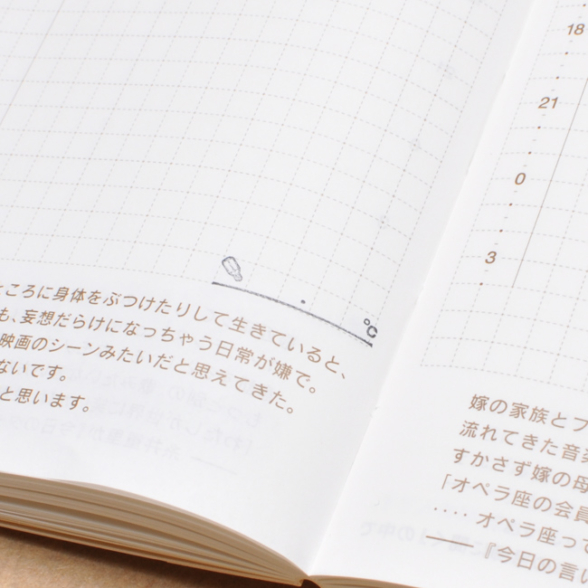 ところに身体をぶつけたりして生きていると、
も、妄想だらけになっちゃう日常が嫌で。
映画のシーンみたいだと思えてきた。
ないです。
と思います。
℃
18
21
0
3
嫁の家族とフ
流れてきた音楽
すかさず嫁の母
「オペラ座の会員
‥‥オペラ座って
──『今日の言